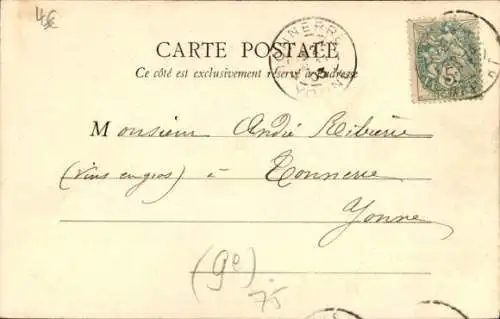 4€
CARTE POSTALE
Ce côté est exclusivement réservé à l'adresse
TONNERRE
YONNE
5
Monsieur André Ribière
(vins en gros) à Tonnerre
Yonne
(9e)
75